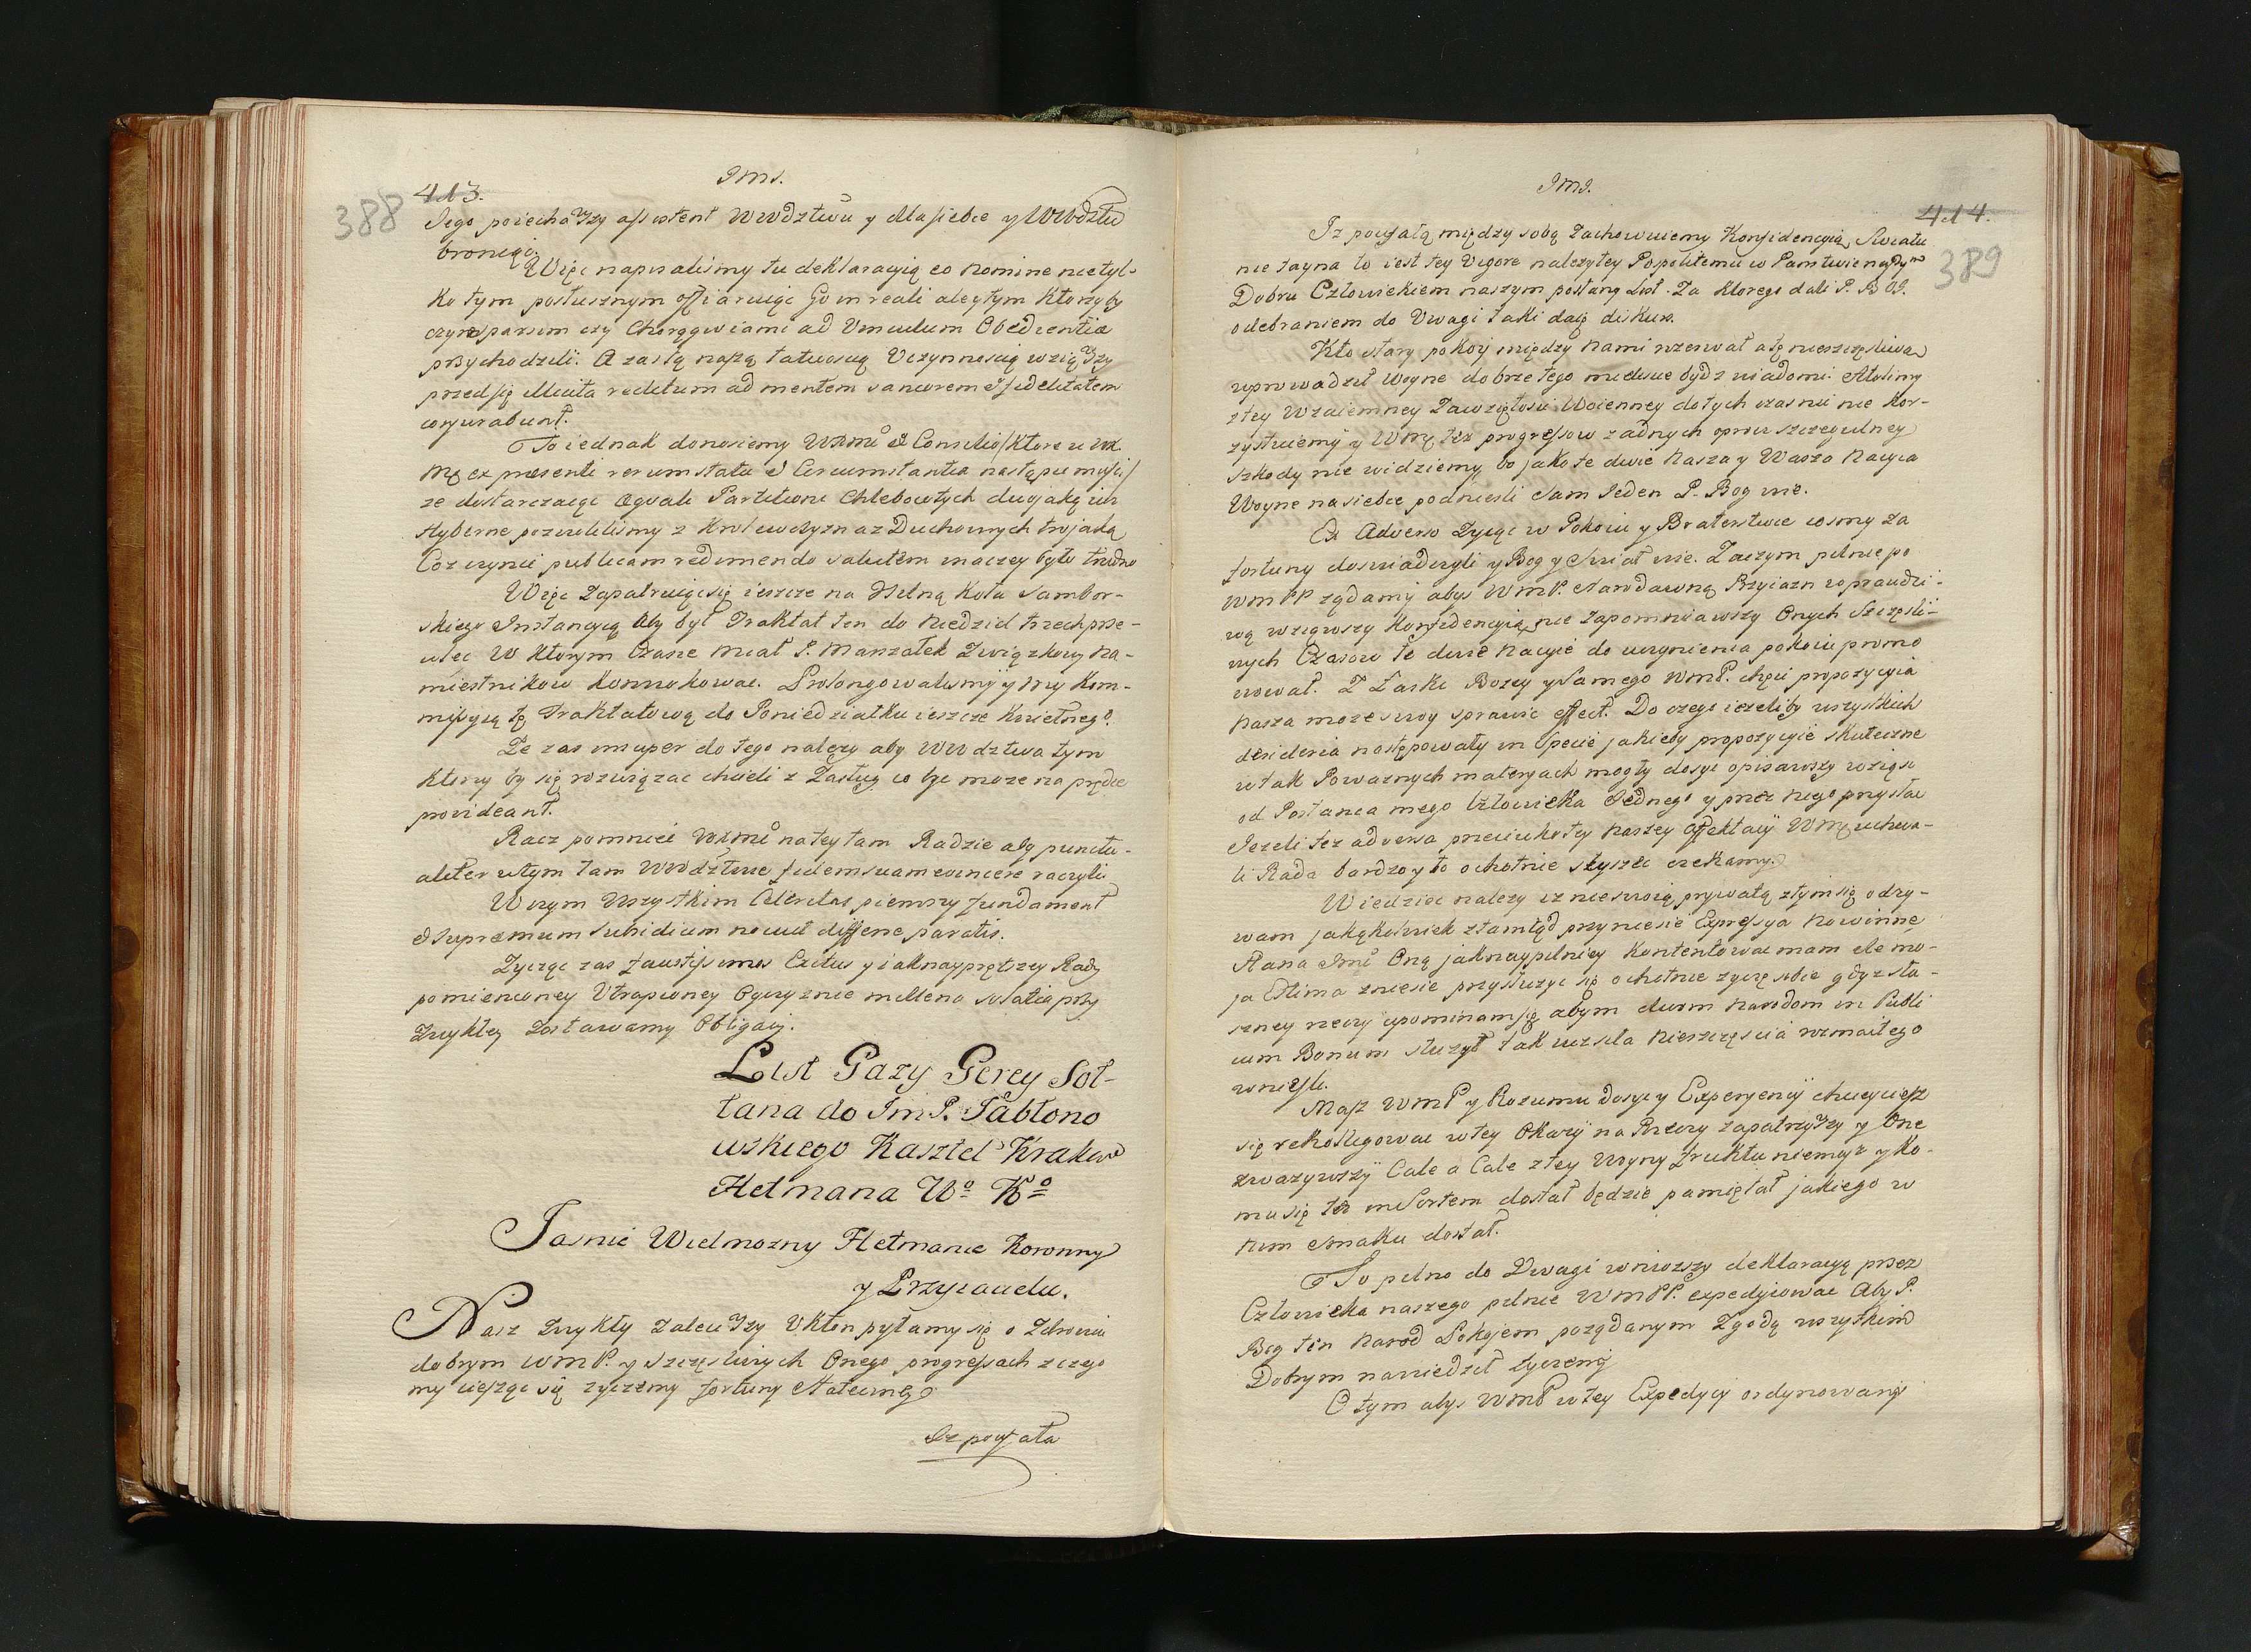 Jms.
413.
388
Jego poiechawszy assistent Wwdztwu y dla siebie y Wwdztw
broniąci.
Więc napisalismy tu deklaracyią eo nomine nietyl-
ko tym posłusznym offiaruiąc Go in reali ale y tym ktorzy by
czym sparsim czy Chorągwiami ad Vinculum Obedientiæ
przychodzili. A za tą naszą łatwoscią Uczynnoscią wziąwszy
przed się Multa reditum ad mentem saniorem et fidelitatem
conjurabunt.
To iednak donosiemy Wxmci et Consilio/ktore u Wx
Mę ex præsenti rerum statu et Circumstantia następuie mysli/
ze dostarczaiąc Æquali Partitioni Chlebowtych dwojaką im
Hyberne pozwolilismy z Krolewszyzn a z Duchownych trojaką
Coz czynić publicam redimendo salutem inaczey było trudno
Więc Zapatruiąc się ieszcze na Usilną Koła Sambor-
skiego Instancyią Aby był Traktat ten do Niedziel trzech prze-
wlec W ktorym Czasie miał P. Marszałek Związkowy Na-
miestnikow konwokowac. Prolongowalismy y my Kom-
missyią tę Traktatową do Poniedziałku ieszcze Kwietnego.
Ze zas insuper do tego nalezy aby WWdztwa tym
ktorzy by się rozwiązac chcieli z Zasług co byc moze na prędce
provideant.
Racz pomniec Wxmć na tey tam Radzie aby punctu-
aliter w tym tam Wwdztwie fidem suam evincere raczyli
W czym Wszystkim Celeritas pierwszy fundament
et supremum subsidium nocuit differre paratis.
Zycząc zas faustissimos Exitus y iaknayprętszey Rady
pomienioney Utrapioney Oyczyznie millena solatia przy
Zwykłey Zostawamy Obligacij.
List Gazy Gerey Soł-
tana do Jm P. Jabłono
wskiego Kasztel Krakow
Hetmana Wo Ko
Jasnie Wielmozny Hetmanie Koronny
y Przyiacielu.
Nasz Zwykły zaleciwszy Ukłon pytamy się o Zdrowiu
dobrym WmP. y szczęsliwych Onego progressach z czego
my ciesząc się zyczemy fortuny Stateczney.
Iz poufała
Jms.
414.
389
Iz poufałą między sobą Zachowuiemy Konfidencyią, Swiatu
nie tayna to iest tey Vigore nalezytey Pospolitemu w Panstwie naszym
Dobru Człowiekiem naszym posłany List. Za ktorego dali P. BOG.
odebraniem do Uwagi taki daię diskurs.
Kto stary pokoy między nami rzerwał a tę nieszczęsliwą
wprowadził Woynę dobrze tego mielisce bydz wiadomi. Atolimy
z tey Wzaiemney Zawziętosci Woienney do tych czas nic nie kor-
zystuiemy y Wmę tez progressow zadnych oprocz szczegulney
szkody nie widziemy, bo jako te dwie Nasza y Wasza Nacyia
Woyne na siebie podniesli Sam Jeden P. Bog wie.
Ex Adverso Zyiąc w Pokoiu y Braterstwie cosmy za
fortuny doswiadczyli y Bog y Swiat wie. Zaczym pilnie po
WmPP żądamy abys WmP. starodawną Przyiazn w prawdzi-
wą wziąwszy Konfidencyią, nie Zapomniawszy Onych Szczęsli-
wych Czasow te dwie Nacyie do uczynienia pokoiu promo
wował. Z Łaski Bozey y Samego WmP. chęci propozycyia
Nasza moze swoy sprawic effect. Do czego iezeliby wszystkich
desideria następowały in specie jakieby propozycyie skuteczne
w tak Powaznych materyach mogły dosyc opisawszy wziąsc
od Posłanca mego Człowieka Jednego y przez niego przysłac
Jezeli tez adversa przeciwko tey naszey affektacij Wmę uchwa-
li Rada bardzo y to ochotnie słyszec czekamy.
Wiedziec nalezy iz nie swoią prywatą z tym się odzy-
wam jakąkolwiek ztamtąd przyniesie Expressya Nowinnę
Hana Jmć Oną jaknaypilniey kontentowac mam ile mo-
ja Estima zniesie przysłuzyc się ochotnie zyczę sobie gdyz słu-
szney rzeczy upominam się abym dwom Narodom in Publi
cum Bonum słuzył tak wzięła Nieszczęscia rozmaitego
wniesli.
Masz WmP y Rozumu dosyc y Experyencij chciey iesz
się rekolligowac w tey Okazij na Rzeczy zapatrzywszy y One
zwazywszy Cale a Cale z tey Woyny fruktu niemasz y ko-
mu się ten in Sortem dostał będzie pamiętał jakiego w
nim smaku dostał.
To pilno do Uwagi wniozszy deklaracyą przez
Człowieka naszego pilnie WmPP. expedyiowac Aby P.
Bog ten Narod Pokojem poządanym Zgodą wszytkim
Dobrym nawiedził zyczemy
O tym abys WmP w tey Expedycij ordynowany